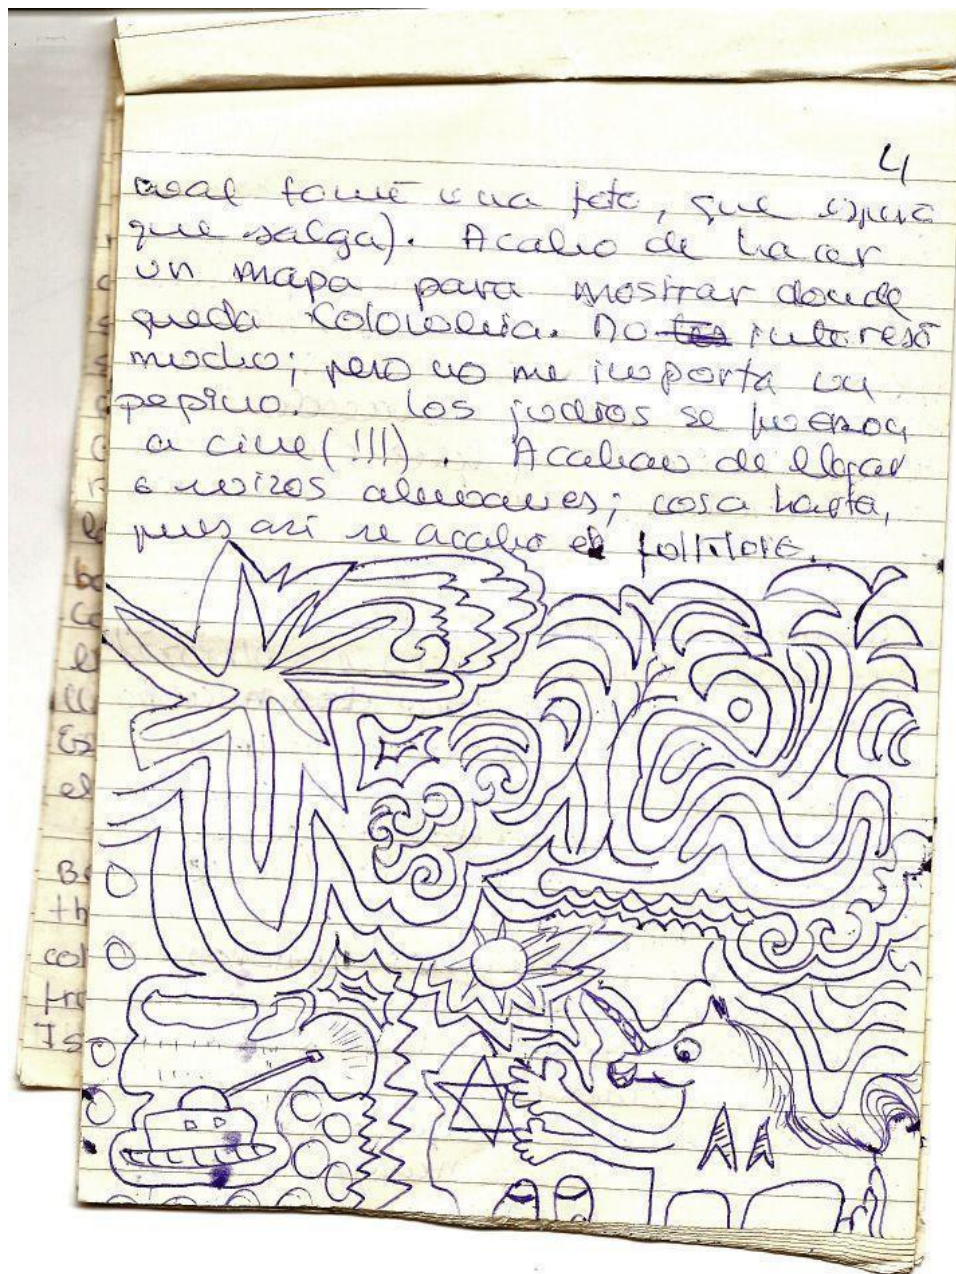 4
cual tomé una foto, que espero
que salga). Acabo de hacer
un mapa para mostrar donde
queda Colombia. No interesó
mucho; pero no me importa un
pepino. Los judíos se fueron
a cine (!!!). Acaban de llegar
alemanes; cosa harta,
pues así se acabó el folklore.
el
Es
el
th
col
Is